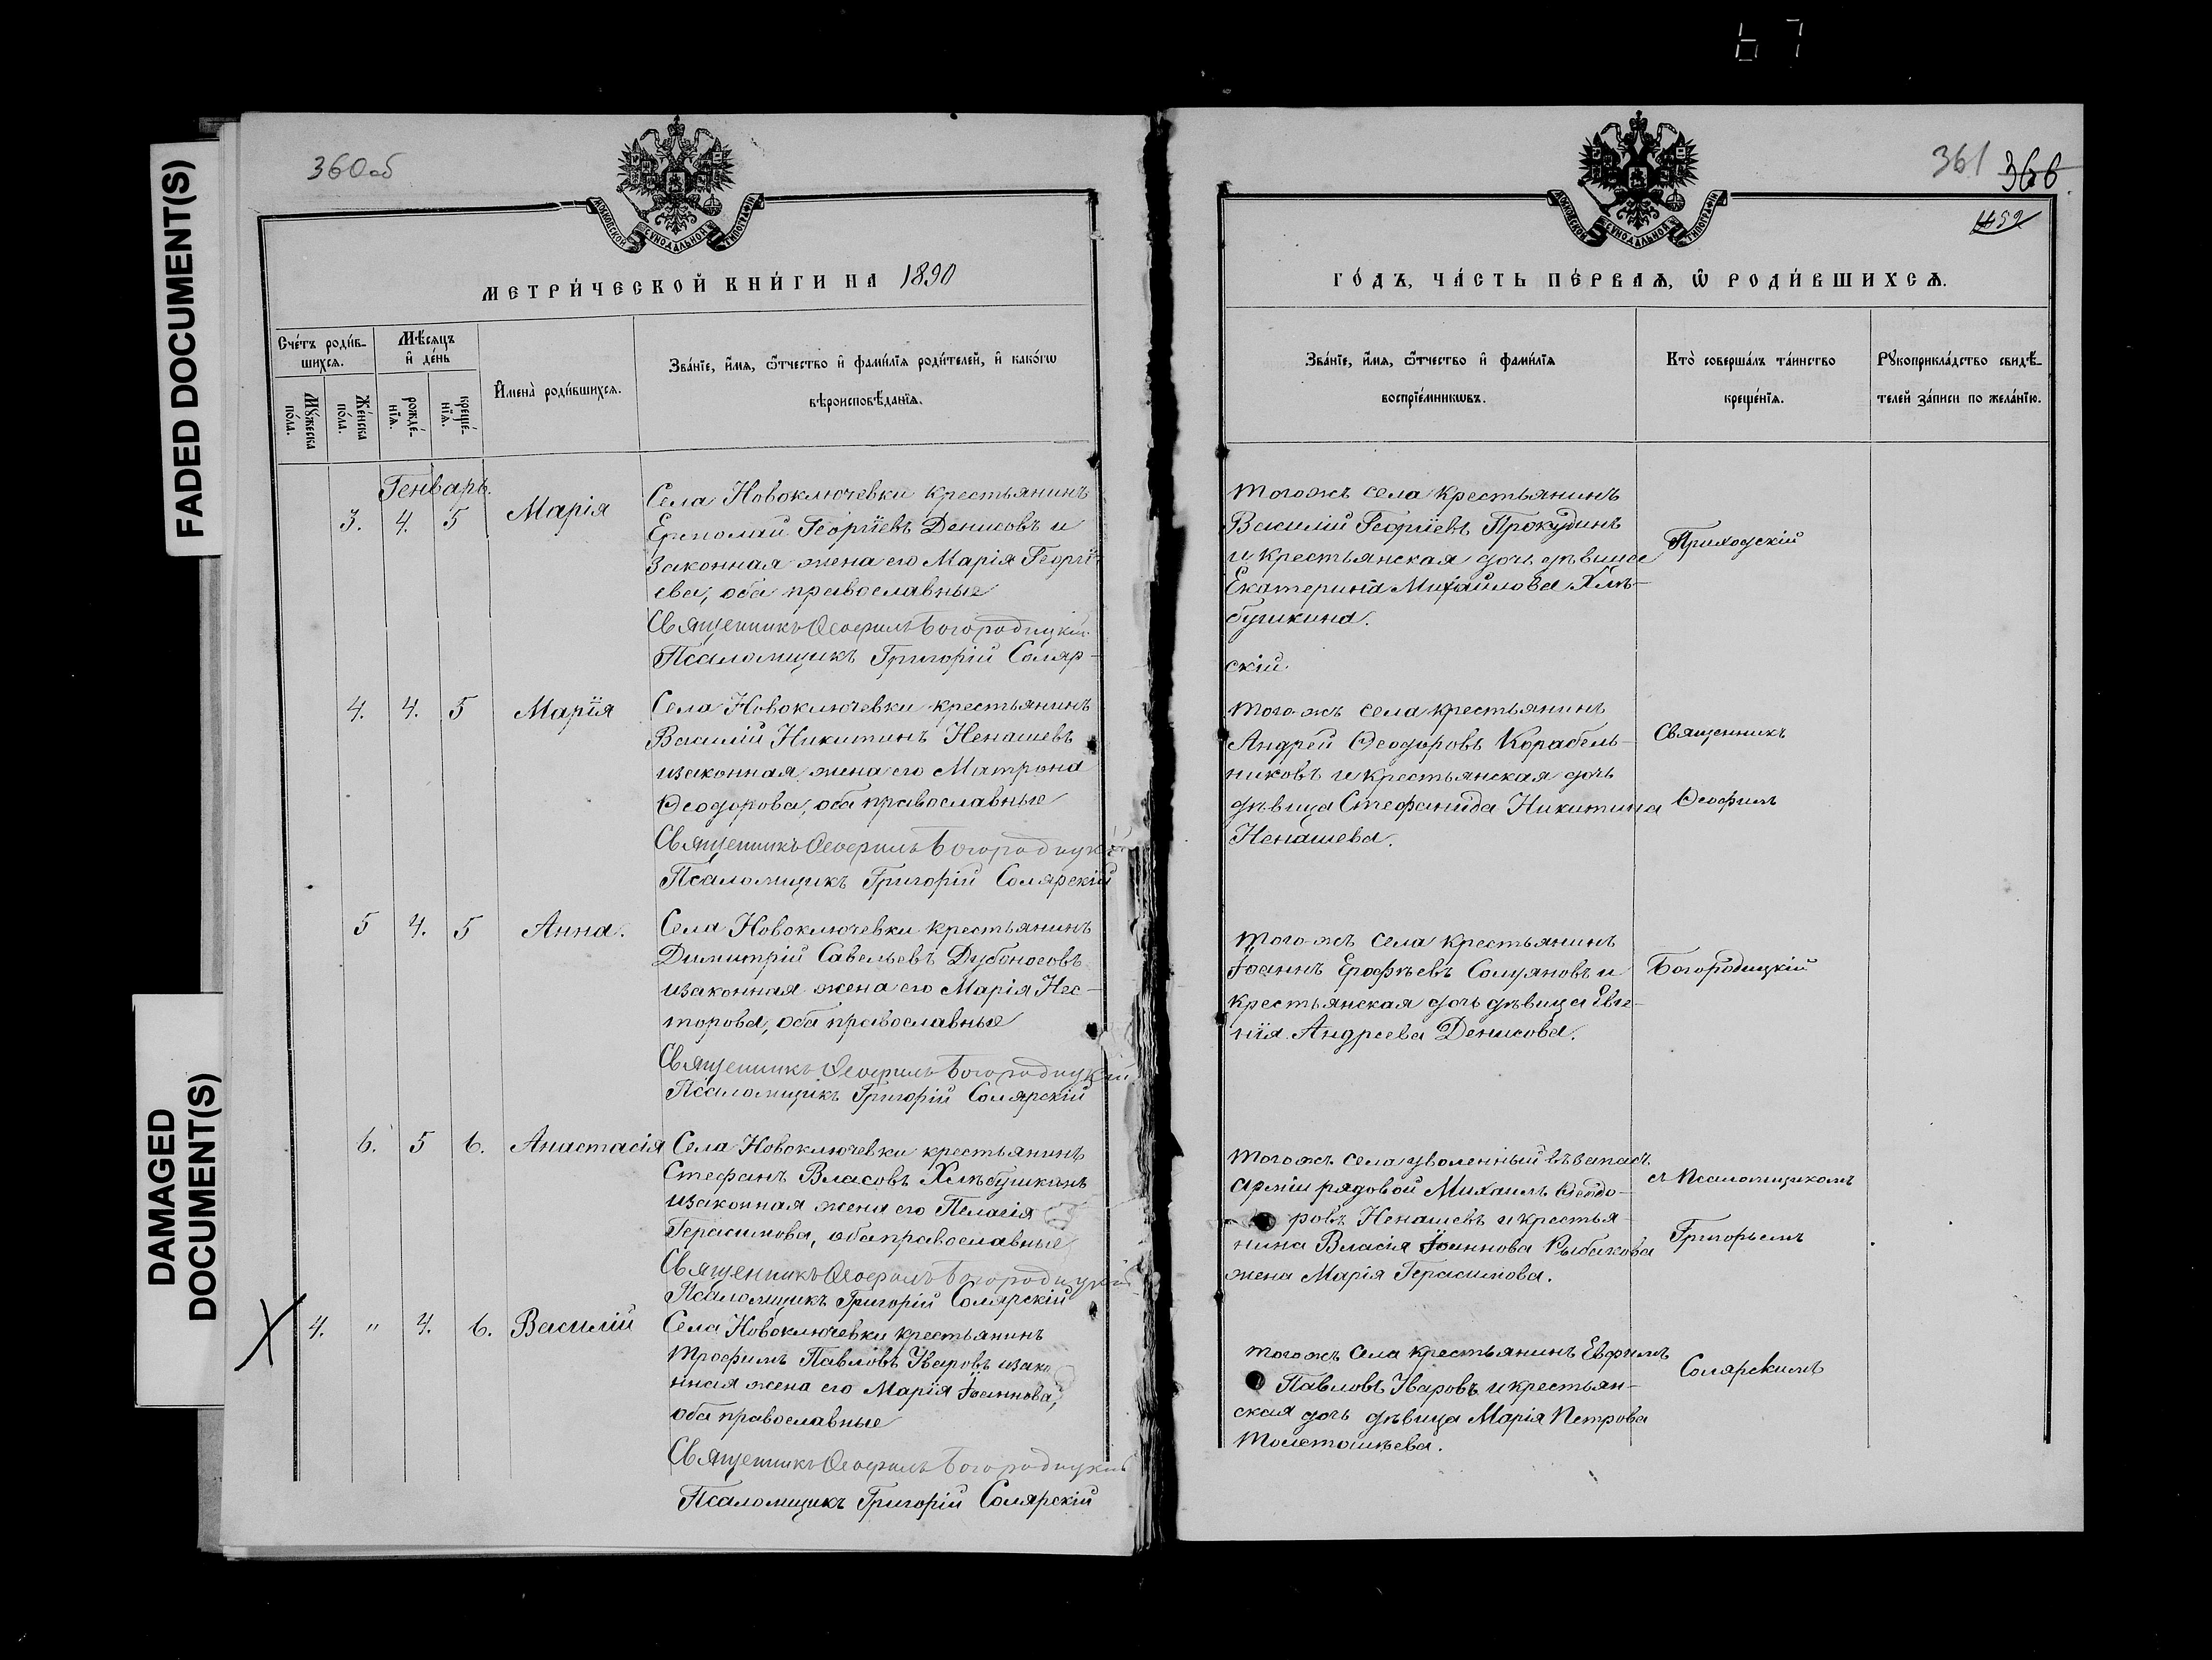 67
FADED DOCUMENT(S)
DAMAGED
DOCUMENT(S)
360об
МОСКОВСКОЙ СѴНОДАЛЬНОЙ ТИПОГРАФІИ
МЕТРИ́ЧЕСКОЙ КНИ́ГИ НА 1890
Сче́тъ роди́в-
шихся.
Мѣ́сяцъ
и҆ де́нь
Мꙋ́жеска
по́ла.
Же́нска
по́ла.
рожде́-
нїѧ.
креще́-
нїѧ.
И҆мена̀ роди́вшихсѧ.
Зва́нїе, и҆́мѧ, ѻ҆́тчество и҆ фами́лїѧ роди́телей, и҆ како́гѡ
вѣроисповѣ́данїѧ.
Генварь.
3. 4. 5 Марія
Села Новоключевки крестьянинъ
Ермолай Георгіевъ Денисовъ и
законная жена его Марія Георгі-
ева, оба православные
Священникъ Ѳеофилъ Богородицкій
Псаломщикъ Григорій Соляр-
4. 4. 5 Марія
Села Новоключевки крестьянинъ
Василій Никитинъ Ненашевъ
и законная жена его Матрона
Ѳеодорова, оба православные
Священникъ Ѳеофилъ Богородицкій
Псаломщикъ Григорій Солярскій
5 4. 5 Анна.
Села Новоключевки крестьянинъ
Димитрій Савельевъ Дубоносовъ
и законная жена его Марія Нес-
торова, оба православные
Священникъ Ѳеофилъ Богородицкій
Псаломщикъ Григорій Солярскій
6. 5 6. Анастасія
Села Новоключевки крестьянинъ
Стефанъ Власовъ Хлѣбушкинъ
и законная жена его Пелагія
Герасимова, оба православные
Священникъ Ѳеофилъ Богородицкій
Псаломщикъ Григорій Солярскій
X 4. " 4. 6. Василій
Села Новоключевки крестьянинъ
Трофимъ Павловъ Уваровъ и зако
нная жена его Марія Іоаннова,
оба православные
Священникъ Ѳеофилъ Богородицкій
Псаломщикъ Григорій Солярскій
361 366
1452
МОСКОВСКОЙ СѴНОДАЛЬНОЙ ТИПОГРАФІИ
ГО́ДЪ, ЧА́СТЬ ПЕ́РВАѦ, Ѽ РОДИ́ВШИХСѦ.
Зва́нїе, и҆́мѧ, ѻ҆́тчество и҆ фами́лїѧ
воспрїе́мникѡвъ.
Кто̀ соверша́лъ та́инство
креще́нїѧ.
Рꙋкоприкла́дство свидѣ́-
телей за́писи по жела́нїю.
Тогожъ села крестьянинъ
Василій Георгіевъ Прокудинъ
и крестьянская дочь дѣвица
Екатерина Михайлова Хлѣ-
бушкина.
скій.
Приходскій
Тогожъ села крестьянинъ
Андрей Ѳеодоровъ Корабель-
никовъ и крестьянская дочь
дѣвица Стефанида Никитина
Ненашева.
Священникъ
Ѳеофилъ
Тогожъ села крестьянинъ
Іоаннъ Ерофѣевъ Солуяновъ и
крестьянская дочь дѣвица Евге-
нія Андреева Денисова.
Богородицкій
Тогожъ села уволенный въ запасъ
арміи рядовой Михаилъ Ѳеодо-
ровъ Ненашевъ и крестья-
нина Власія Іоаннова Рыбакова
жена Марія Герасимова.
съ Псаломщикомъ
Григорьемъ
Тогожъ села крестьянинъ Евфимъ
Павловъ Уваровъ и крестьян-
ская дочь дѣвица Марія Петрова
Солярскимъ